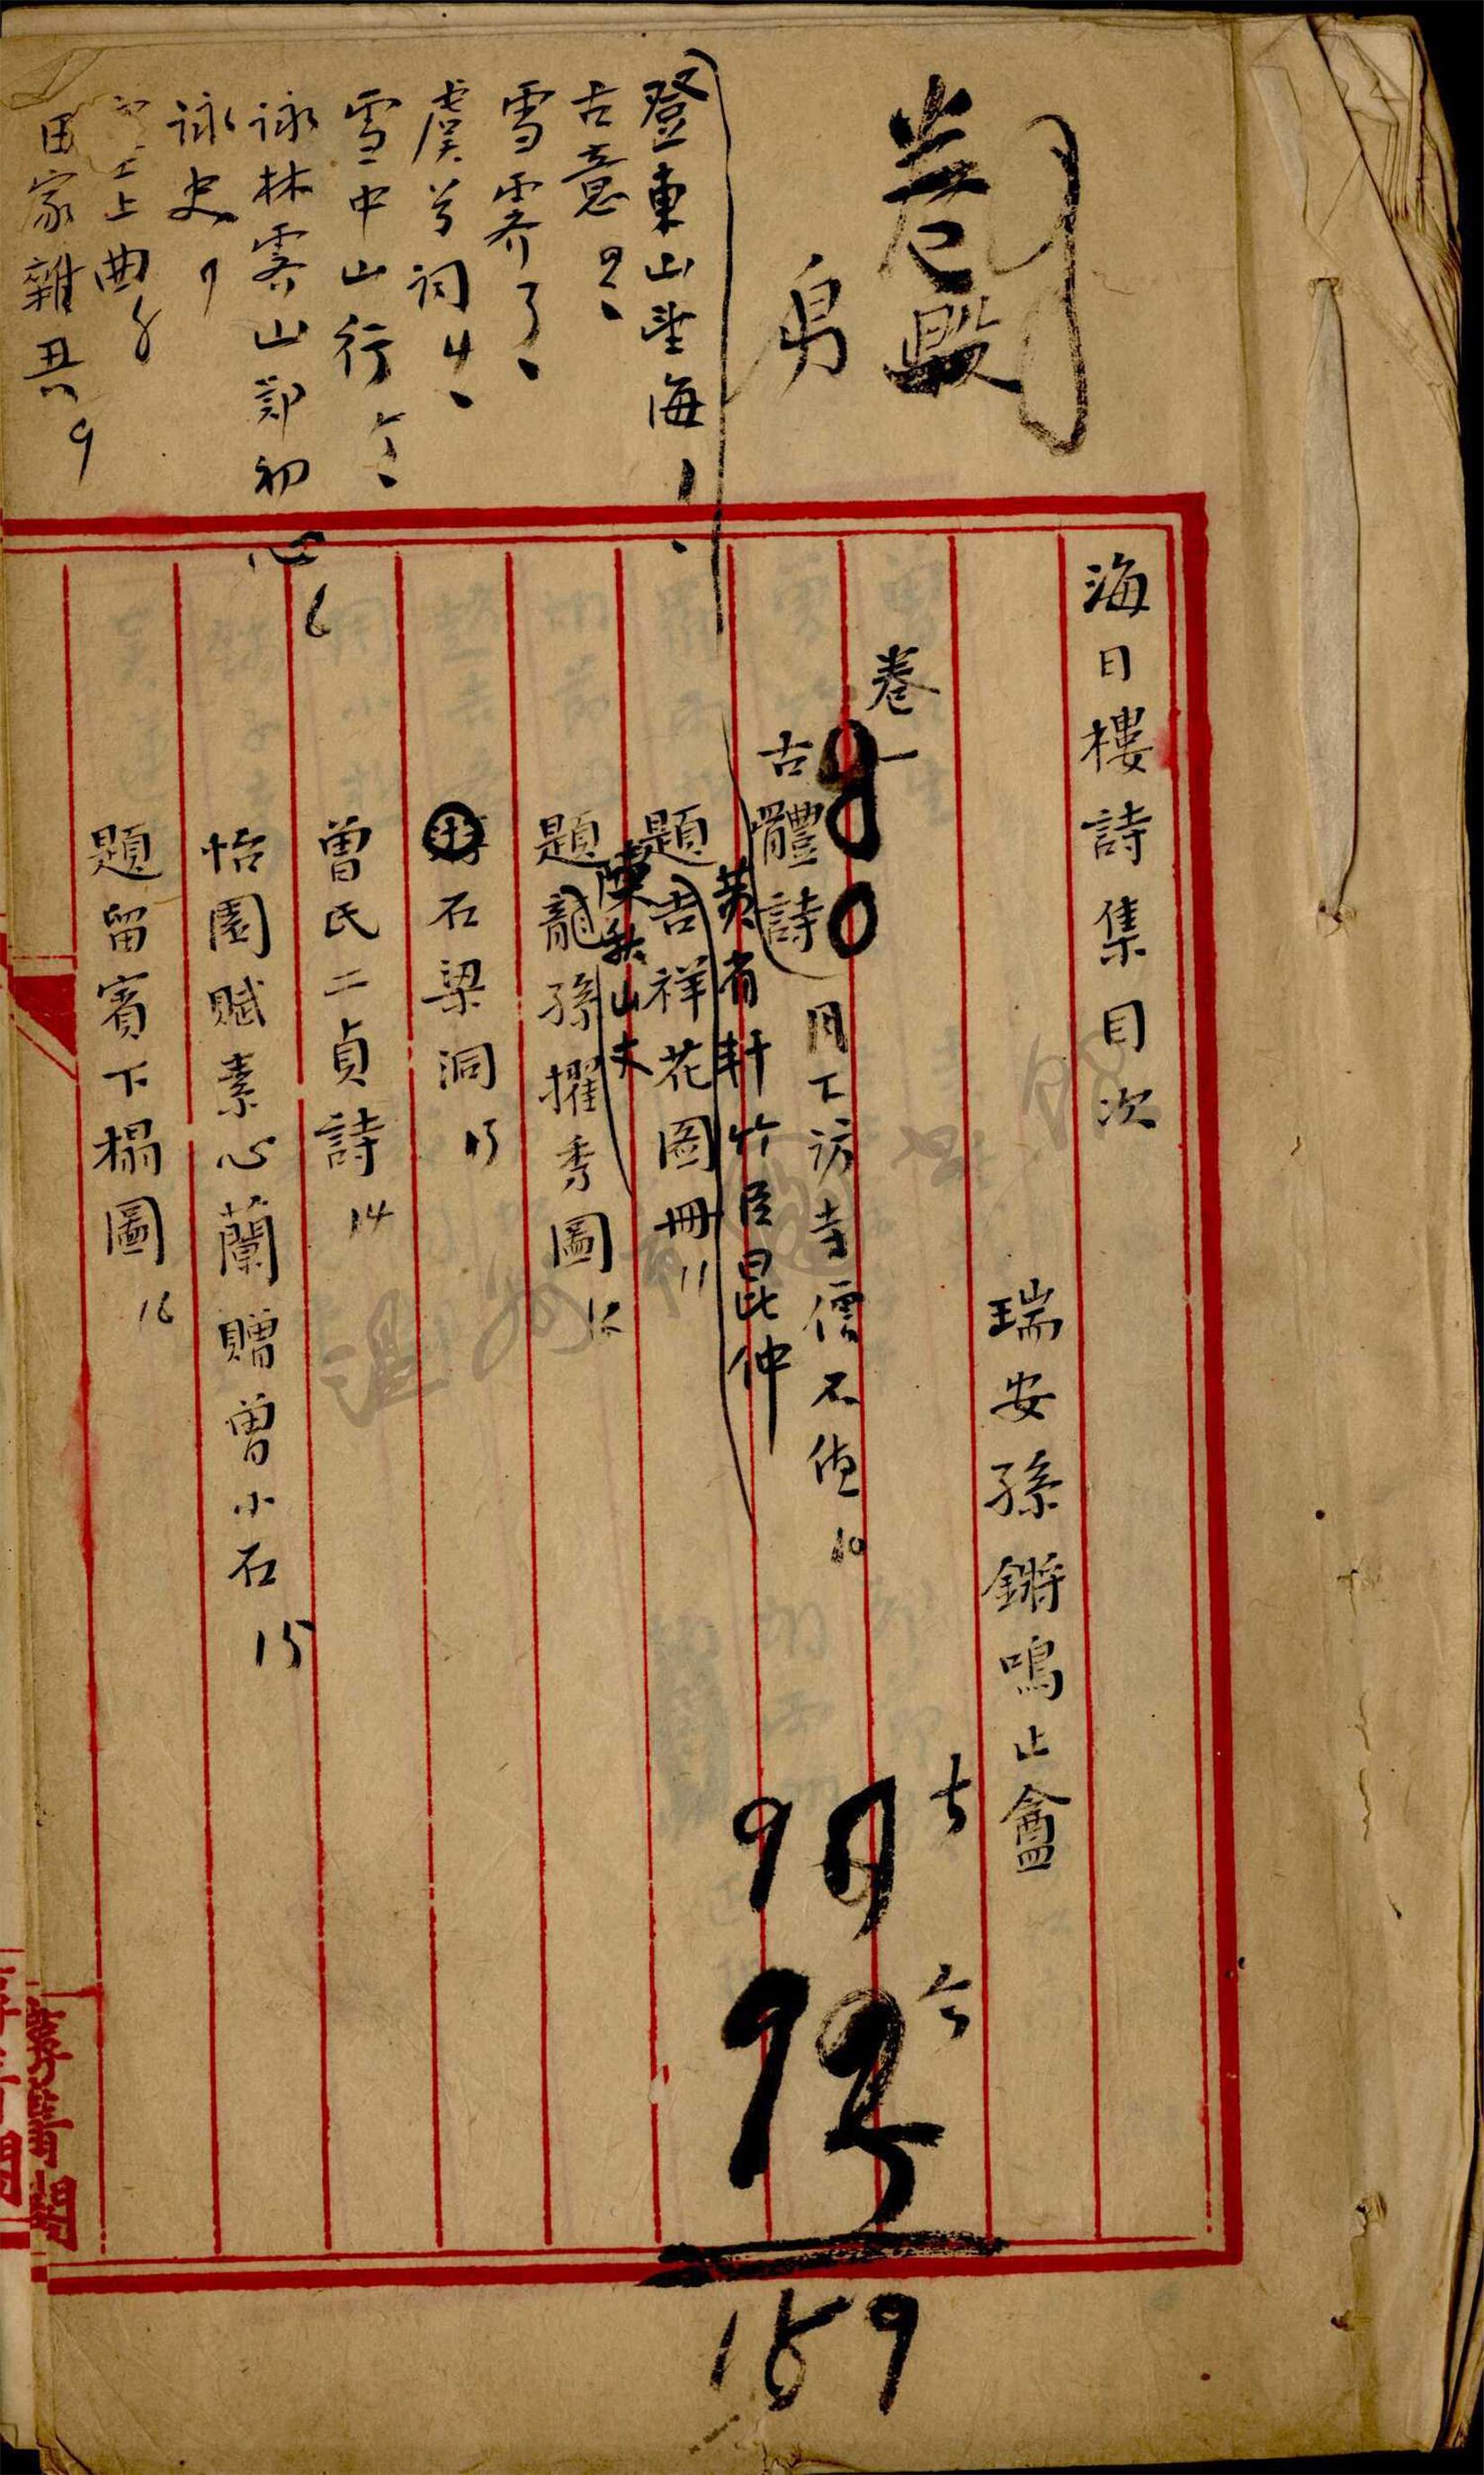 海日樓詩集目次
瑞安孫鏘鳴止盦
卷一
80
古體詩
月下訪寺僧不值 10
黃省軒竹臣昆仲
題吉祥花圖冊 11
陳秋山夫
題龍孫擢秀圖 12
石梁洞 13
曾氏二貞詩 14
怡園賦素心蘭贈曾小石 15
題留賓下榻圖 16
登東山望海 1、
古意 2、
雪霽 3、
虞兮詞 4、
雪中山行 5、
詠林霽山鄭初心 6
詠史 7
上曲 8
田家雜興 9
古
97
今
92
189